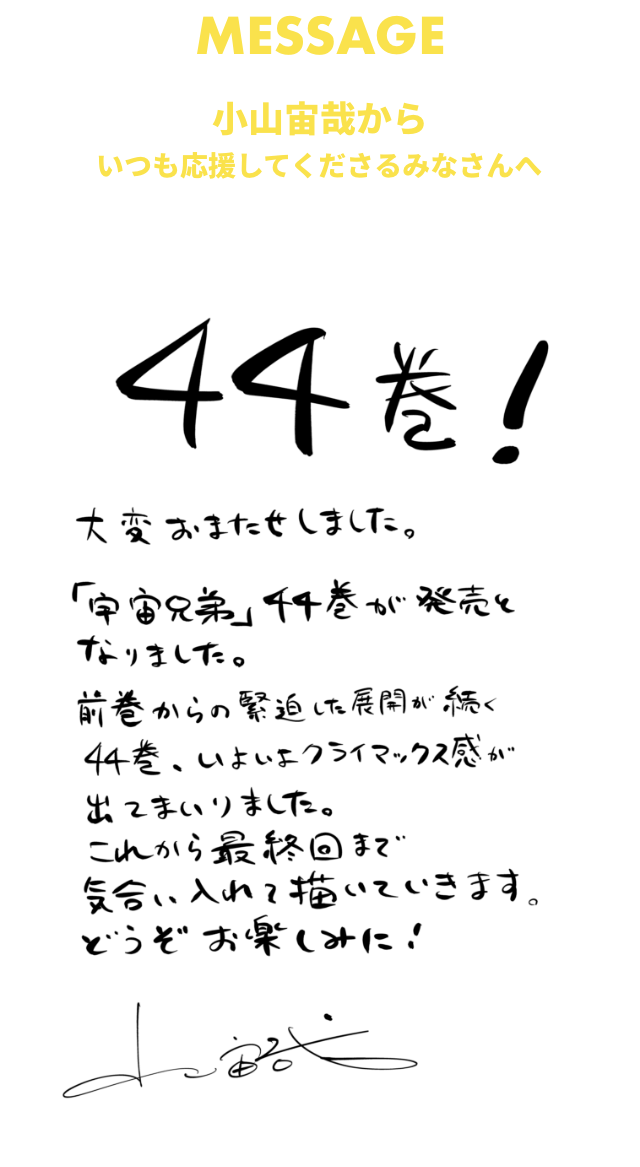 MESSAGE
小山宙哉から
いつも応援してくださるみなさんへ
44巻!
大変おまたせしました。
「宇宙兄弟」44巻が発売と
なりました。
前巻からの緊迫した展開が続く
44巻、いよいよクライマックス感が
出てまいりました。
これから最終回まで
気合い入れて描いていきます。
どうぞお楽しみに!
小山宙哉